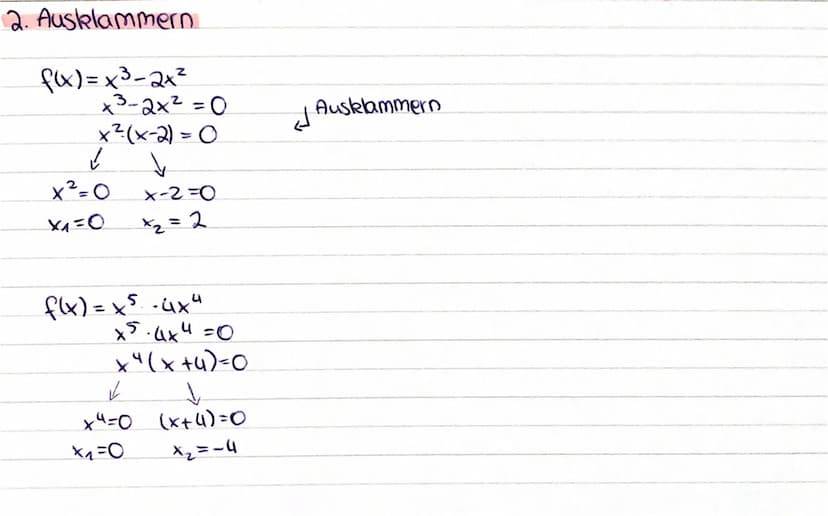 2. Ausklammern
f(x) = x³ - 2x²
x³ - 2x² = 0
↲ Ausklammern
x²·(x-2) = 0
↙ ↘
x² = 0 x-2 = 0
x₁ = 0 x₂ = 2
f(x) = x⁵ · 4x⁴
x⁵ · 4x⁴ = 0
x⁴(x+4) = 0
↙ ↘
x⁴ = 0 (x+4) = 0
x₁ = 0 x₂ = -4